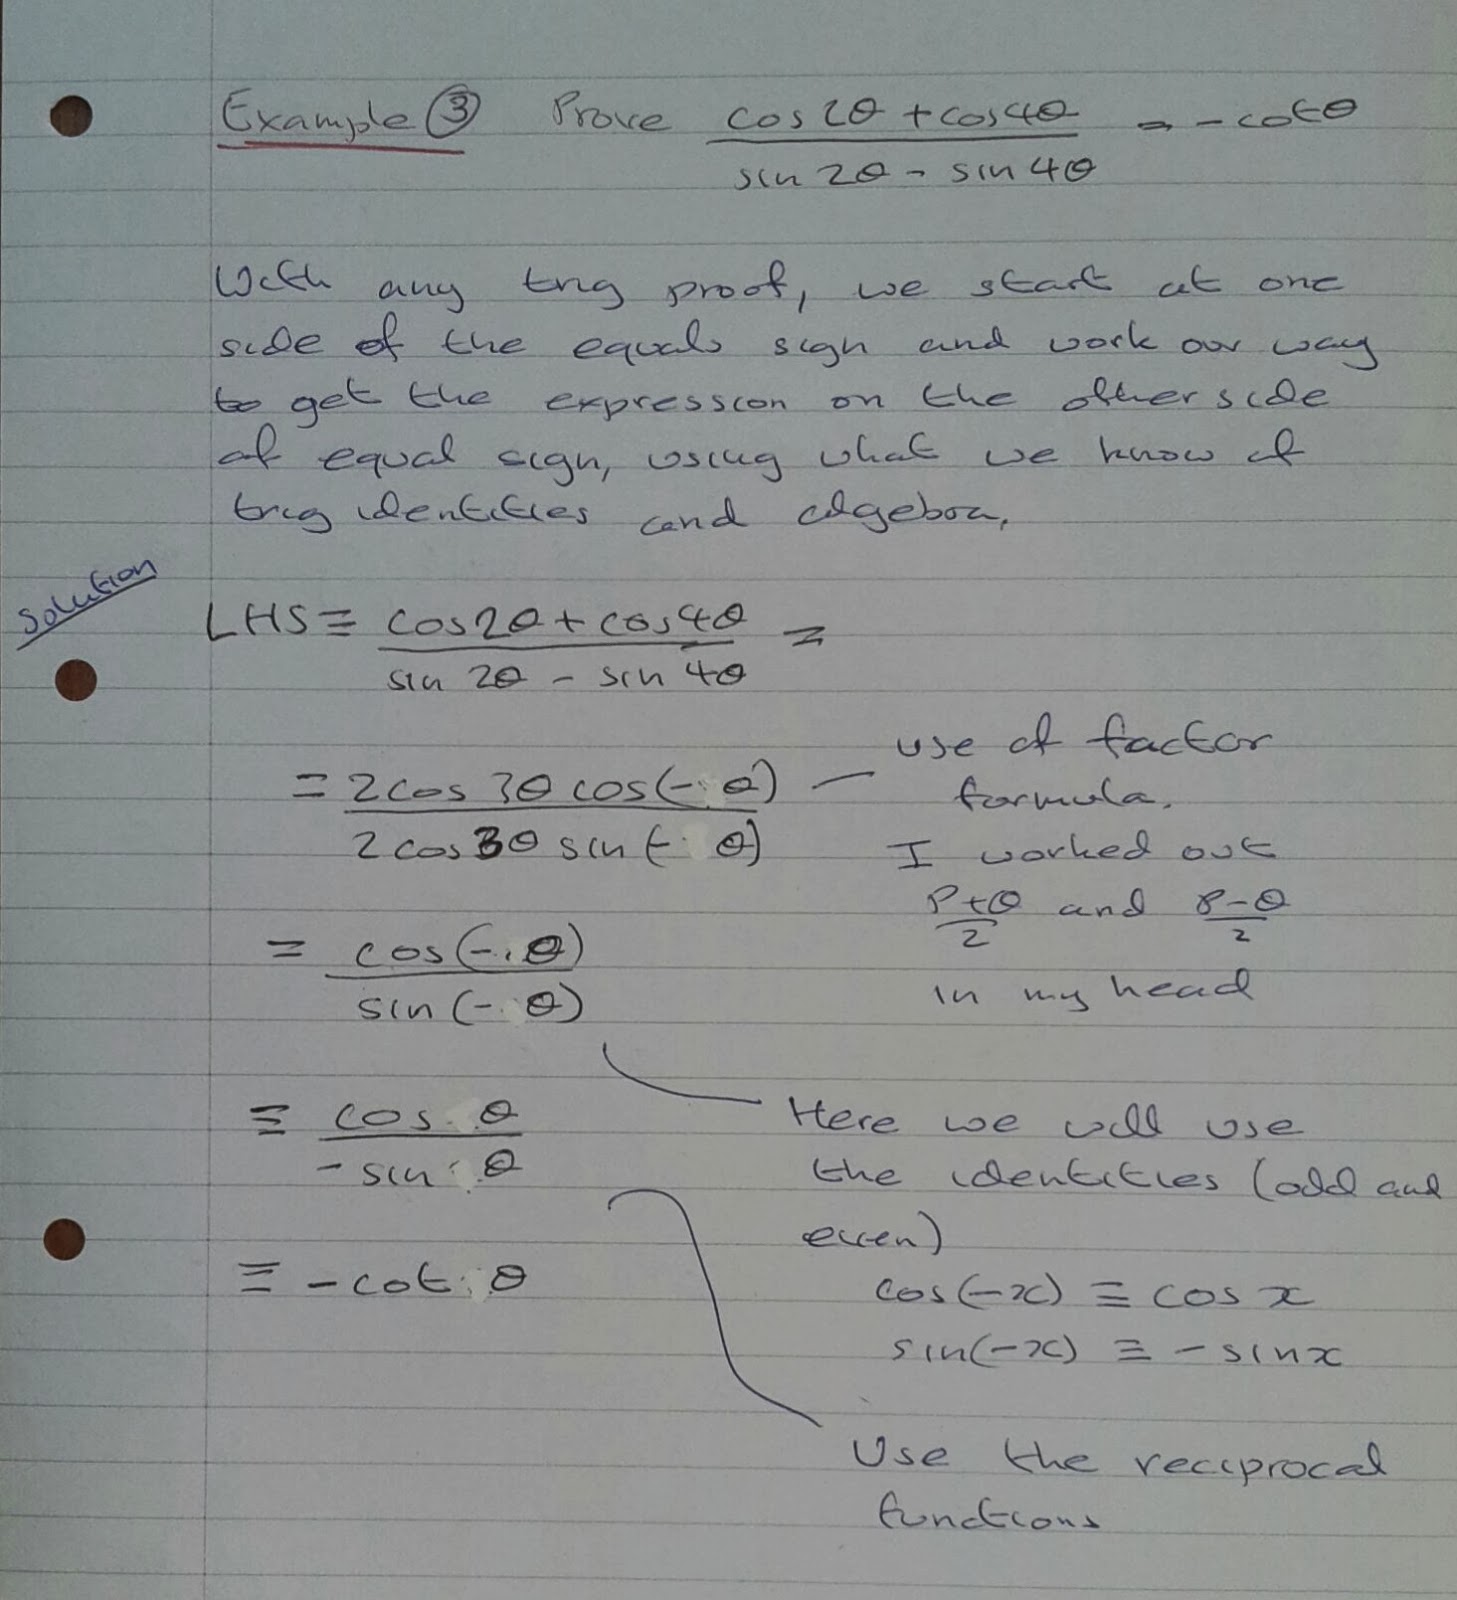 Example ③ Prove cos2θ + cos4θ / sin 2θ - sin 4θ = -cotθ
With any trig proof, we start at one
side of the equals sign and work our way
to get the expression on the other side
of equal sign, using what we know of
trig identities and algebra.
Solution
LHS ≡ cos2θ + cos4θ / sin 2θ - sin 4θ =
= 2cos 3θ cos(-θ) / 2cos3θ sin(-θ)
use of factor
formula.
I worked out
P+Q/2 and P-Q/2
in my head
= cos(-θ) / sin(-θ)
≡ cos θ / -sin θ
Here we will use
the identities (odd and
even)
cos(-x) ≡ cos x
sin(-x) ≡ -sinx
≡ -cot θ
Use the reciprocal
functions